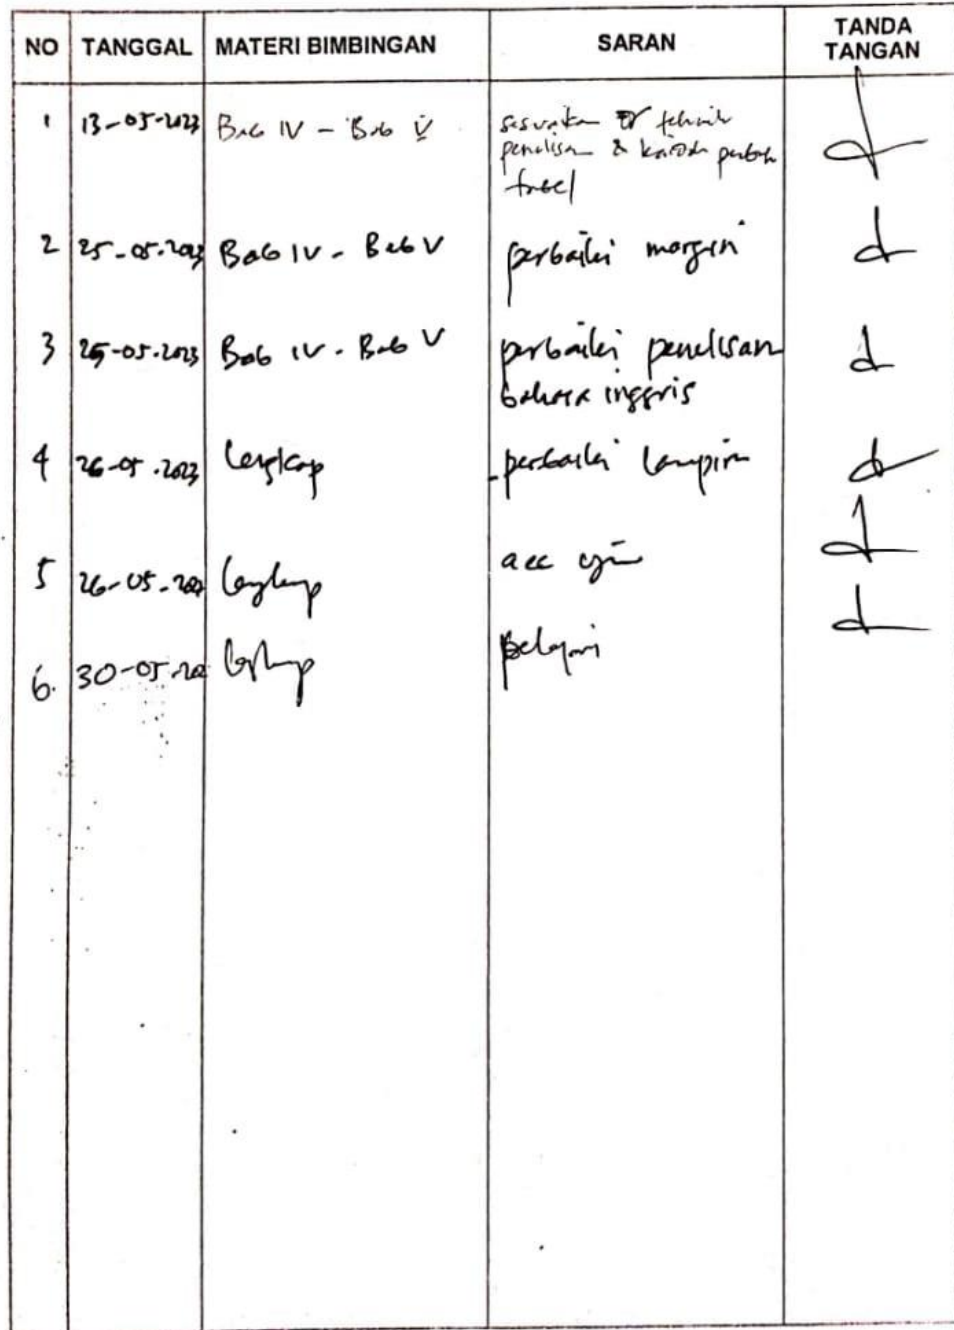 NO TANGGAL MATERI BIMBINGAN SARAN TANDA TANGAN
1 13-05-2023 Bab IV - Bab V sesuaikan tehnik
penulisan &
tabel
2 25-05-2023 Bab IV - Bab V perbaiki margin
3 25-05-2023 Bab IV - Bab V perbaiki penulisan
bahasa inggris
4 26-05-2023 lengkap perbaiki lampiran
5 26-05-202 lengkap acc ujian
6. 30-05-202 lengkap pelajari